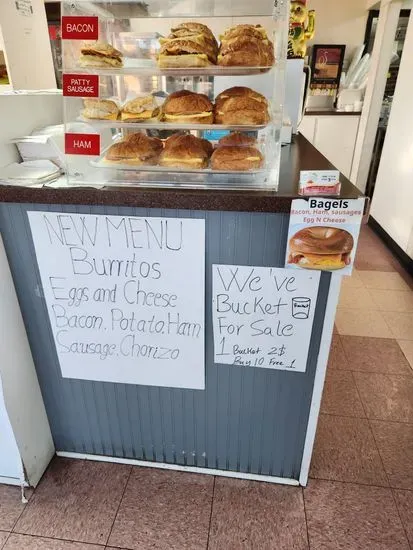 BACON
PATTY
SAUSAGE
HAM
Bagels
Bacon, Ham, sausages
Egg N Cheese
NEW MENU
Burritos
Eggs and Cheese
Bacon, Potato, Ham
Sausage, Chorizo
We've
Bucket
For Sale
1 Bucket 2$
Buy 10 Free 1